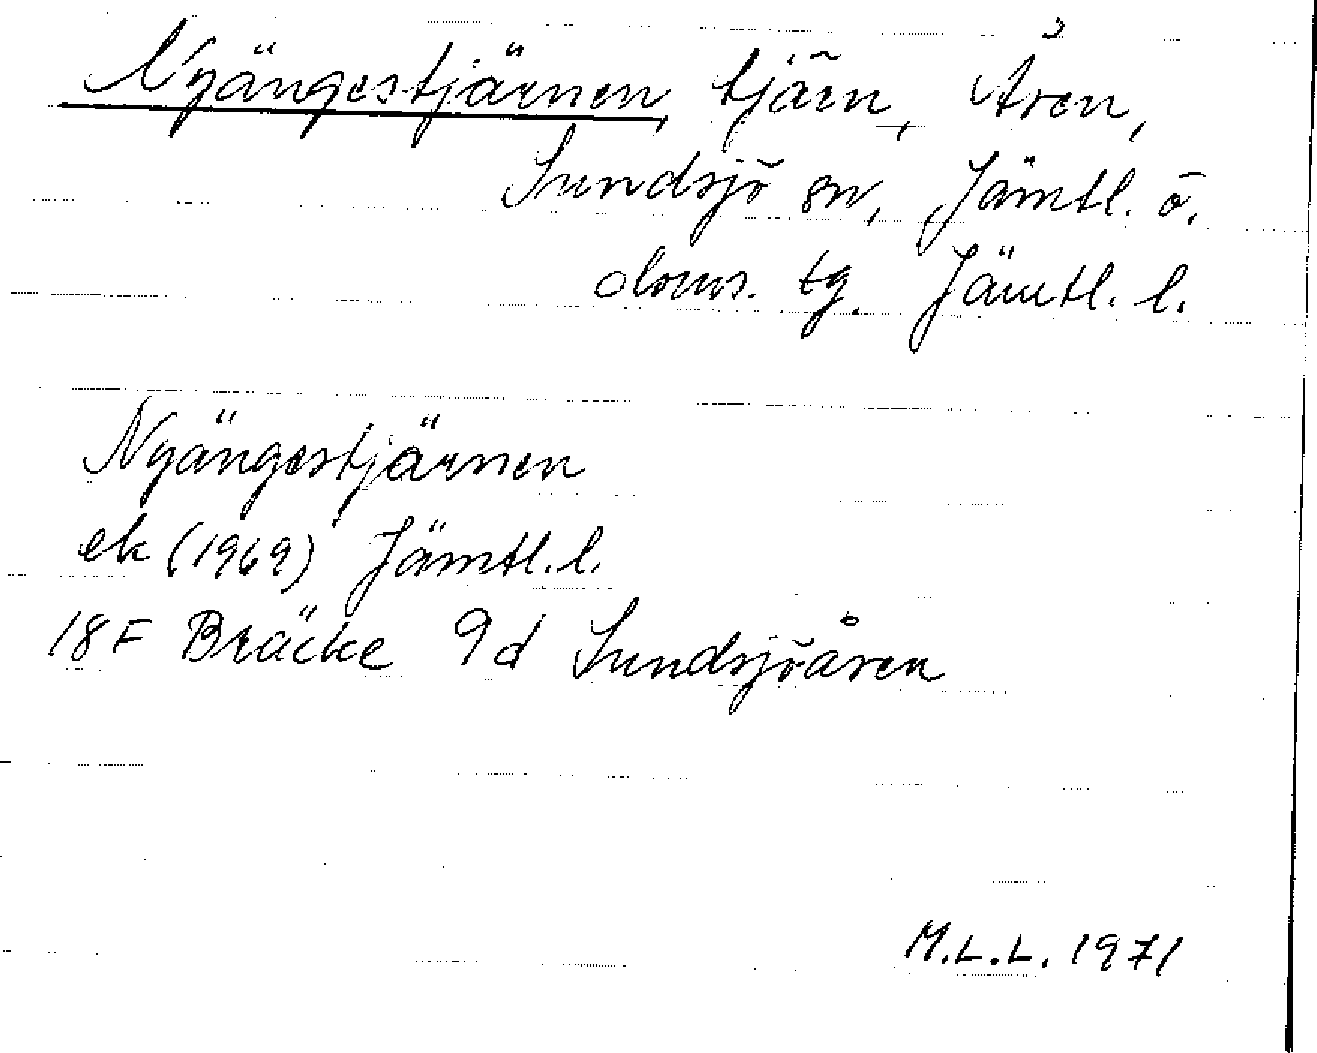 Nyängestjärnen, tjärn, Åsen,
Sundsjö sn, Jämtl. ö.
doms. tg. Jämtl. l.
Nyängestjärnen
ek (1969) Jämtl. l.
18F Bräcke 9d Sundsjöåsen
M.L.L. 1971